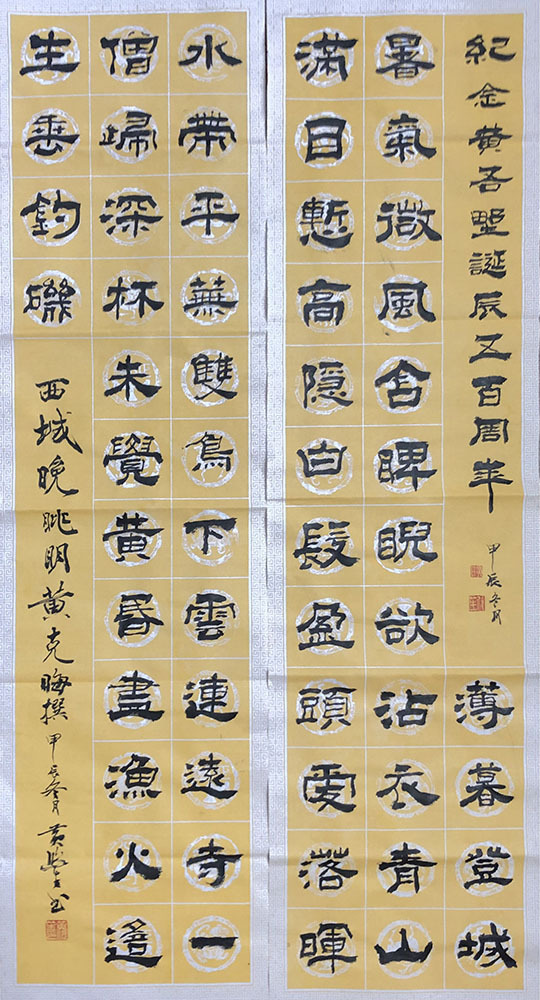 紀念黃吾野誕辰五百周年
甲辰冬月
薄暮登城
暑氣微風含睥睨欲沾衣青山
滿目慙高隱白髮盈頭愛落暉
水帶平蕪雙鳥下雲連遠寺一
僧歸深杯未覺黃昏盡漁火遙
生垂釣磯
西城晚眺明黃克晦撰甲辰冬月黃书